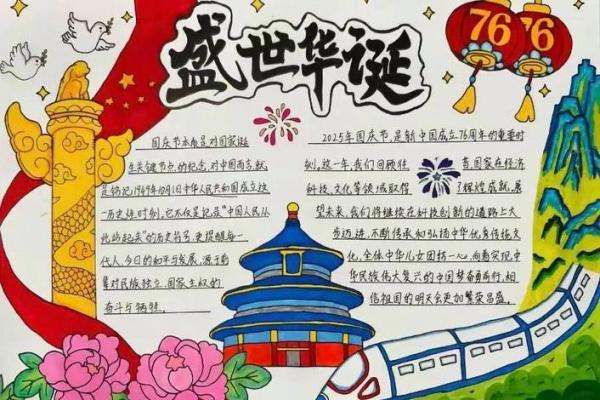 盛世华诞
76
76
国庆节本质是对国家诞
生关键节点的纪念,对中国而言,就
是铭记1949年10月1日中华人民共和国成立这
一历史性时刻。它不仅是纪念"中国人民从
此站起来"的历史符号,更提醒每一
代人,今日的和平与发展,源于前
辈对民族独立、国家主权的
奋斗与牺牲。
2025年国庆节,是新中国成立76周年的重要时
刻。这一年,我们回顾往昔,国家在经济
科技、文化等领域取得了辉煌成就。展
望未来,我们将继续在科技创新的道路上大
步迈进,不断传承和弘扬中华优秀传统文
化,全体中华儿女团结一心,向着实现中
华民族伟大复兴的中国梦奋勇前行,相
信祖国的明天会更加繁荣昌盛。